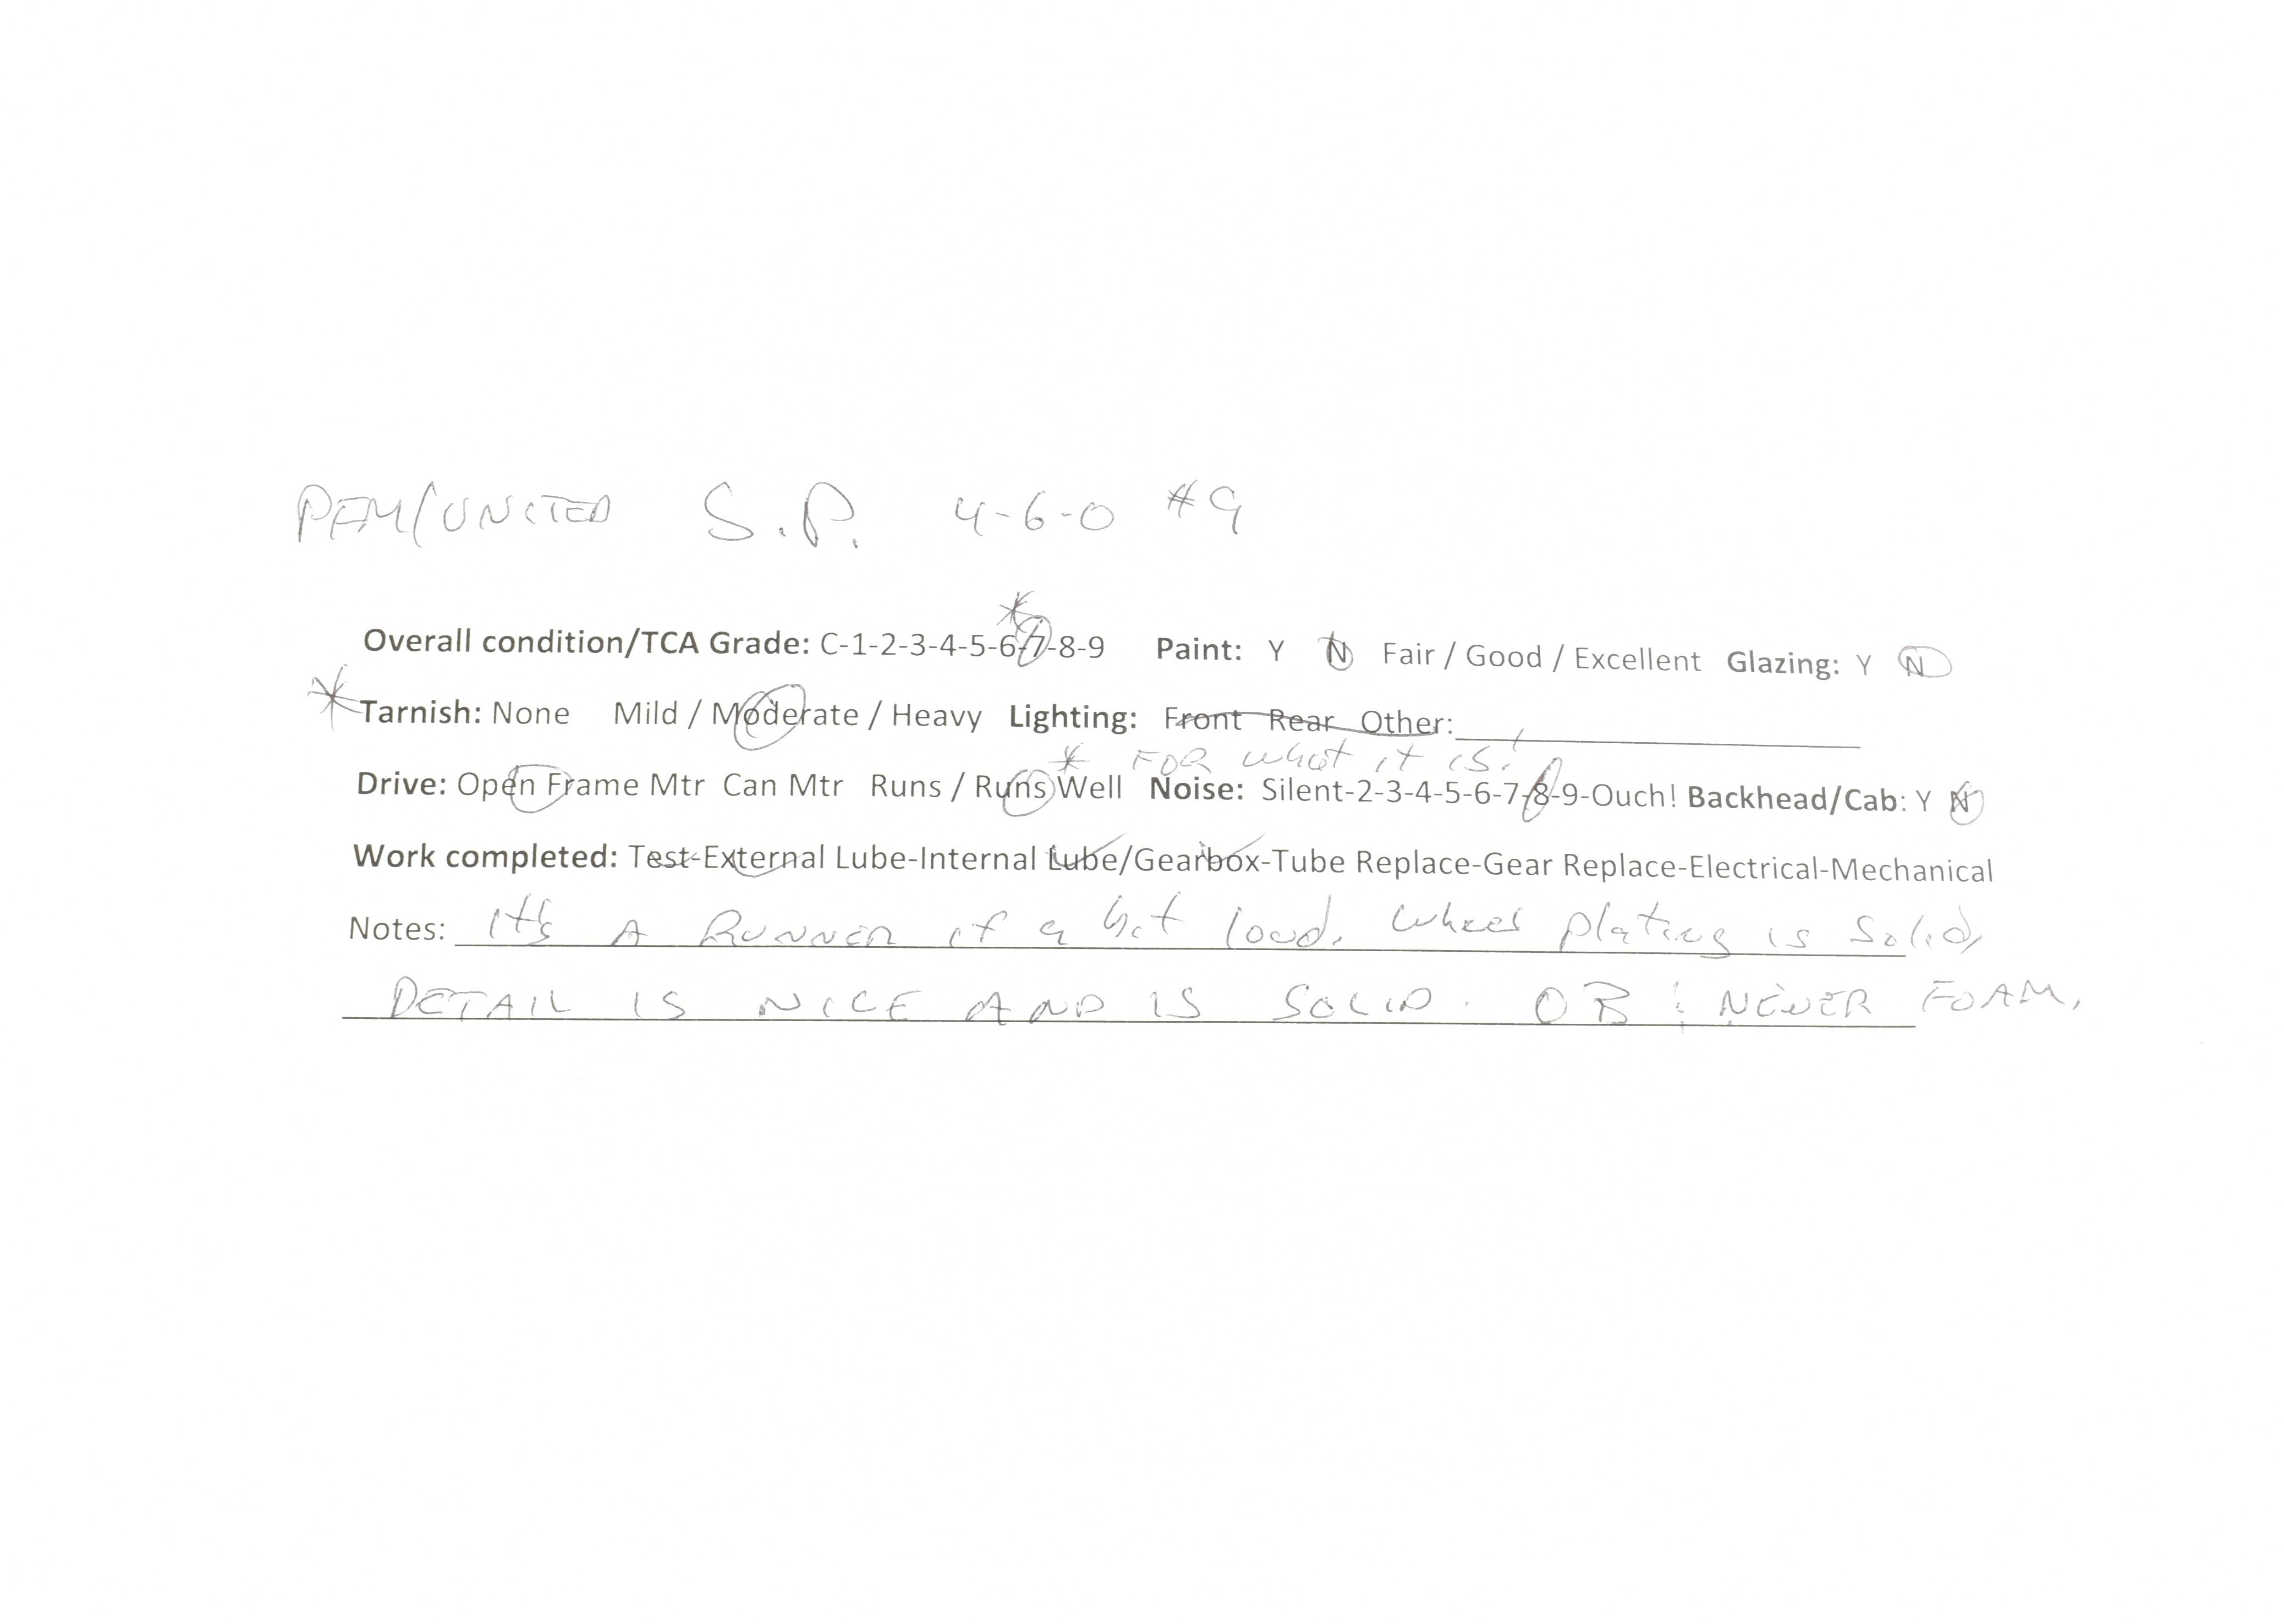 PFM/UNITED S.P. 4-6-0 #9
Overall condition/TCA Grade: C-1-2-3-4-5-6-7-8-9 Paint: Y N Fair / Good / Excellent Glazing: Y N
Tarnish: None Mild / Moderate / Heavy Lighting: Front Rear Other:
* FOR what it is!
Drive: Open Frame Mtr Can Mtr Runs / Runs Well Noise: Silent-2-3-4-5-6-7-8-9-Ouch! Backhead/Cab: Y N
Work completed: Test-External Lube-Internal Lube/Gearbox-Tube Replace-Gear Replace-Electrical-Mechanical
Notes: It's A RUNNER if a bit loud. Wheel plating is solid,
DETAIL IS NICE AND IS SOLID. OB: NEWER FOAM.